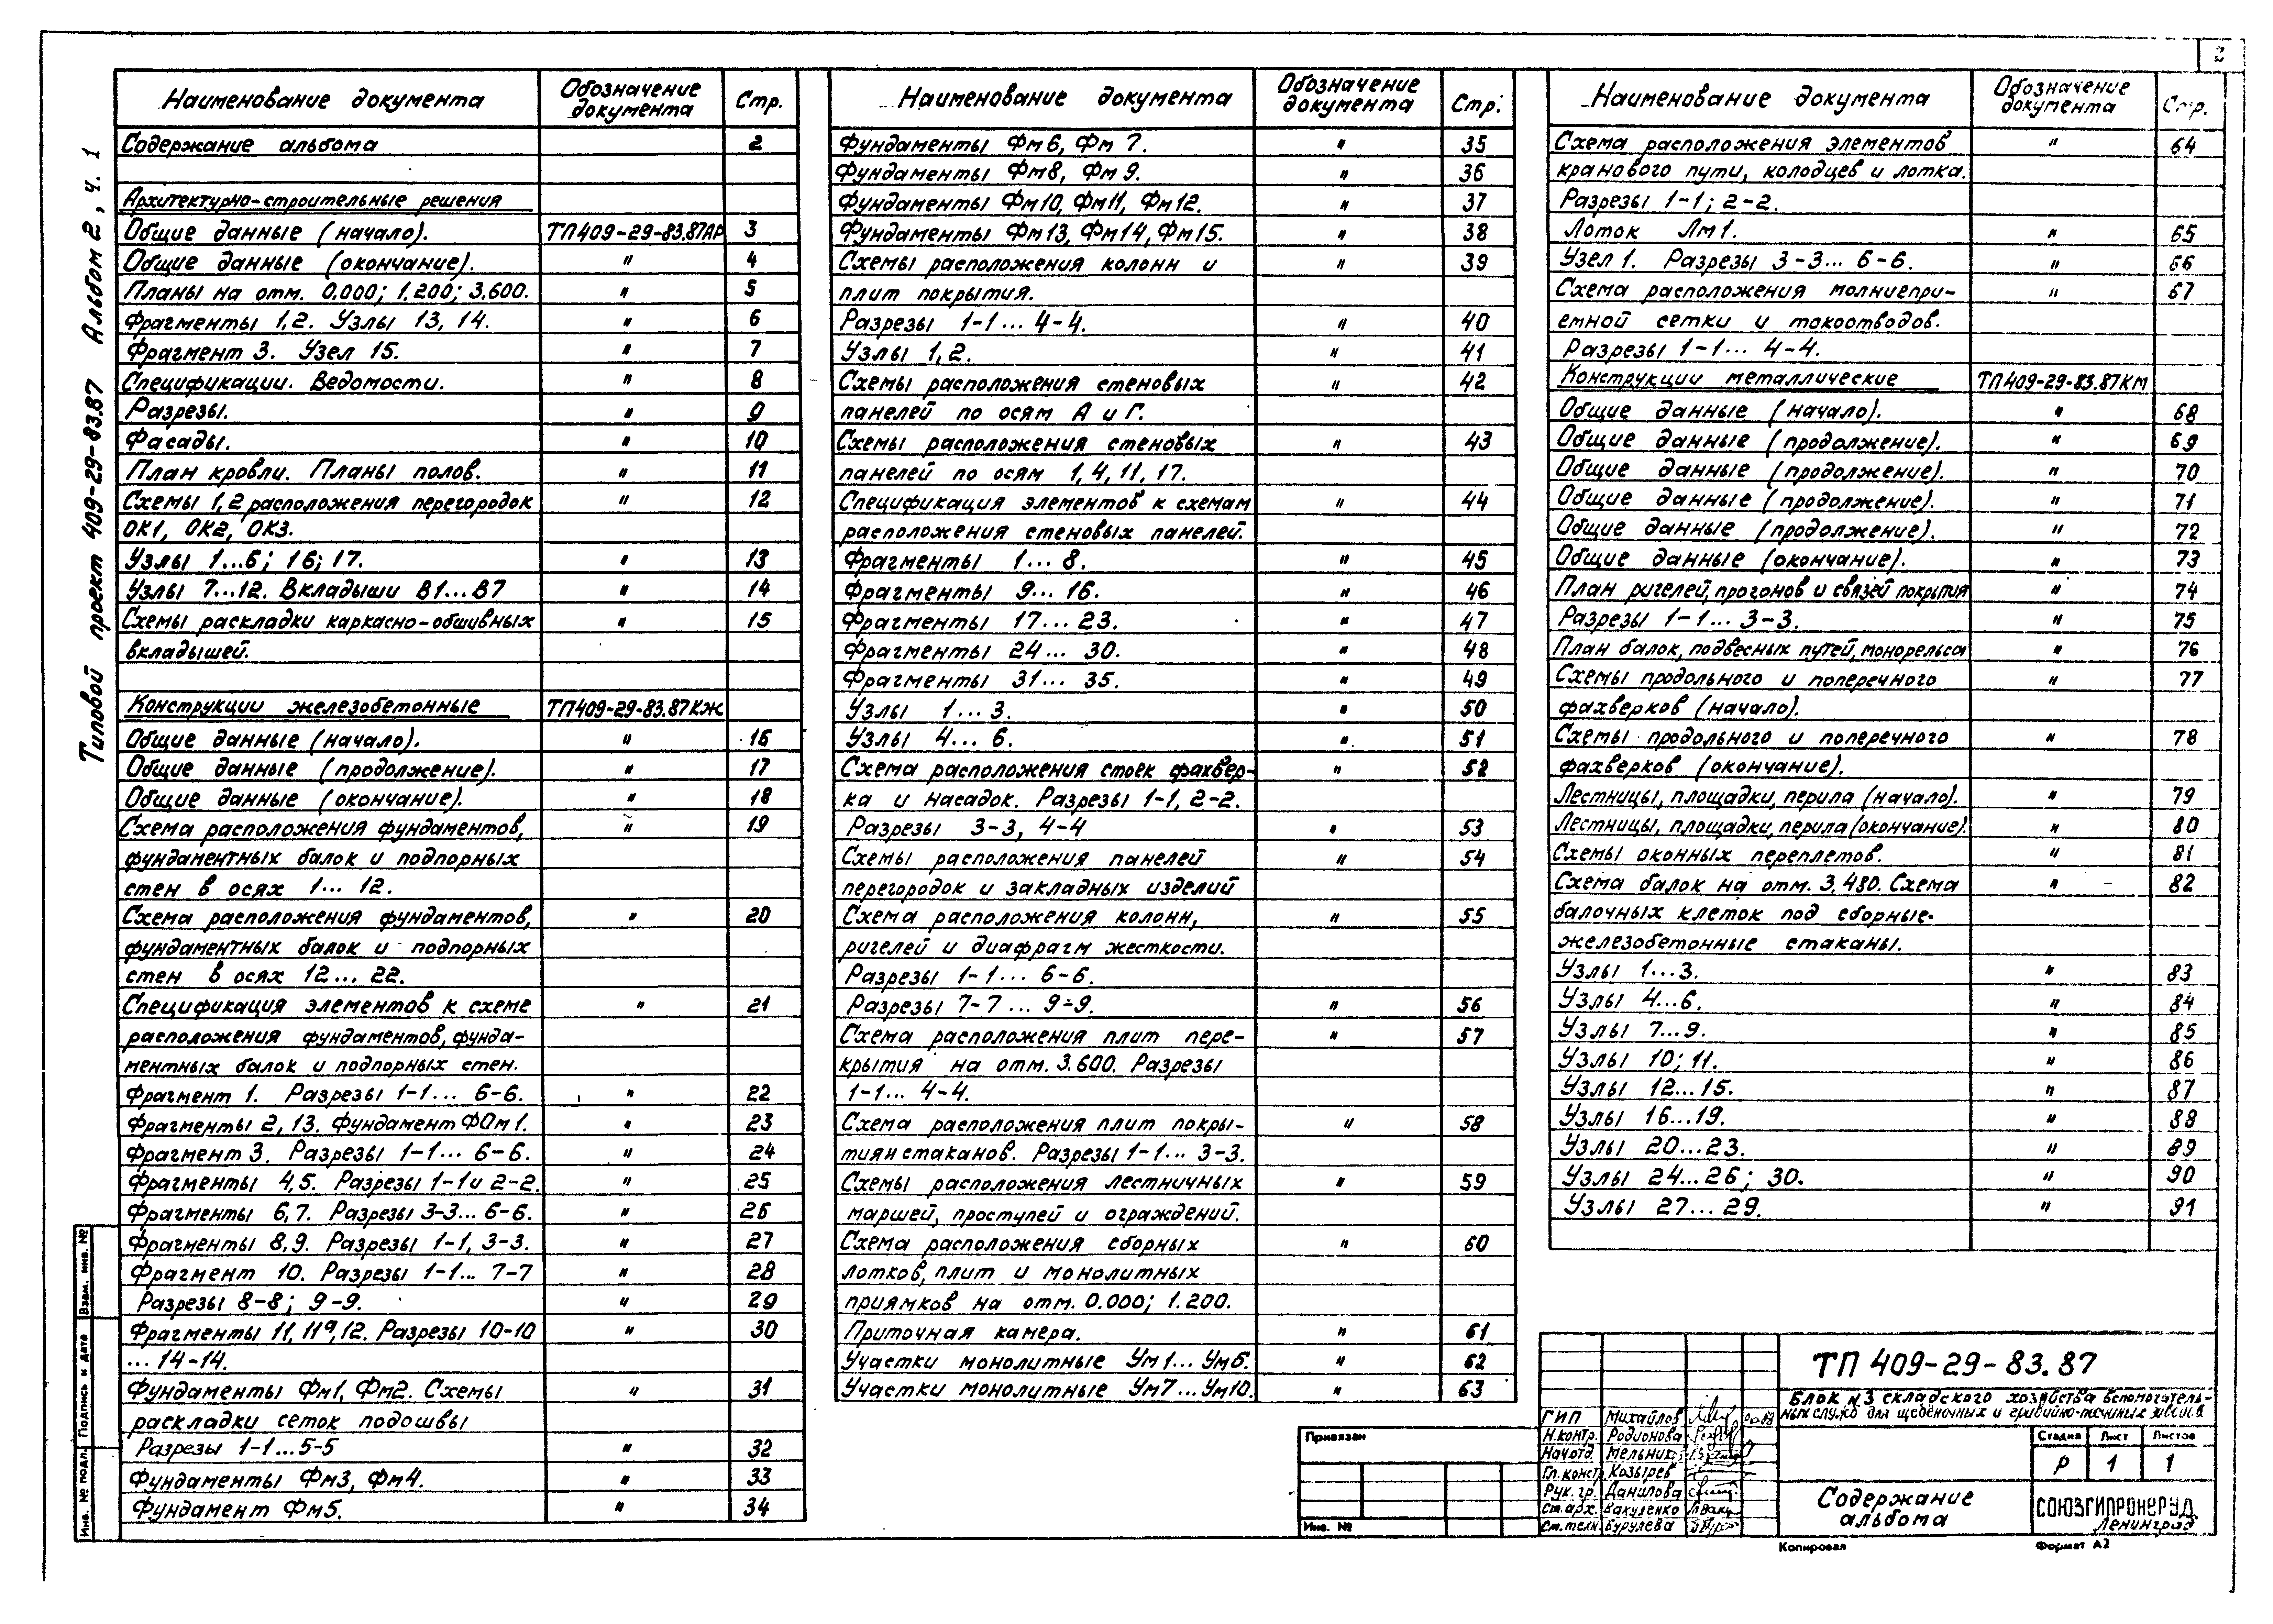 2
Типовой проект 409-29-83.87 Альбом 2, ч. 1
Наименование документа Обозначение документа Стр.
Содержание альбома 2
Архитектурно-строительные решения
Общие данные (начало). ТП409-29-83.87АР 3
Общие данные (окончание). " 4
Планы на отм. 0.000; 1.200; 3.600. " 5
Фрагменты 1,2. Узлы 13, 14. " 6
Фрагмент 3. Узел 15. " 7
Спецификации. Ведомости. " 8
Разрезы. " 9
Фасады. " 10
План кровли. Планы полов. " 11
Схемы 1,2 расположения перегородок " 12
ОК1, ОК2, ОК3.
Узлы 1...6; 16; 17. " 13
Узлы 7...12. Вкладыши В1...В7 " 14
Схемы раскладки каркасно-обшивных " 15
вкладышей.
Конструкции железобетонные ТП409-29-83.87КЖ
Общие данные (начало). " 16
Общие данные (продолжение). " 17
Общие данные (окончание). " 18
Схема расположения фундаментов, " 19
фундаментных балок и подпорных
стен в осях 1... 12.
Схема расположения фундаментов, " 20
фундаментных балок и подпорных
стен в осях 12... 22.
Спецификация элементов к схеме " 21
расположения фундаментов, фунда-
ментных балок и подпорных стен.
Фрагмент 1. Разрезы 1-1... 6-6. " 22
Фрагменты 2, 13. Фундамент ФОм1. " 23
Фрагмент 3. Разрезы 1-1... 6-6. " 24
Фрагменты 4,5. Разрезы 1-1 и 2-2. " 25
Фрагменты 6,7. Разрезы 3-3... 6-6. " 26
Фрагменты 8,9. Разрезы 1-1, 3-3. " 27
Фрагмент 10. Разрезы 1-1... 7-7 " 28
Разрезы 8-8; 9-9. " 29
Фрагменты 11, 11а, 12. Разрезы 10-10 " 30
... 14-14.
Фундаменты Фм1, Фм2. Схемы " 31
раскладки сеток подошвы
Разрезы 1-1...5-5 " 32
Фундаменты Фм3, Фм4. " 33
Фундамент Фм5. " 34
Наименование документа Обозначение документа Стр.
Фундаменты Фм6, Фм 7. " 35
Фундаменты Фм8, Фм 9. " 36
Фундаменты Фм10, Фм11, Фм12. " 37
Фундаменты Фм13, Фм14, Фм15. " 38
Схемы расположения колонн и " 39
плит покрытия.
Разрезы 1-1... 4-4. " 40
Узлы 1,2. " 41
Схемы расположения стеновых " 42
панелей по осям А и Г.
Схемы расположения стеновых " 43
панелей по осям 1, 4, 11, 17.
Спецификация элементов к схемам " 44
расположения стеновых панелей.
Фрагменты 1... 8. " 45
Фрагменты 9... 16. " 46
Фрагменты 17... 23. " 47
Фрагменты 24... 30. " 48
Фрагменты 31... 35. " 49
Узлы 1... 3. " 50
Узлы 4... 6. " 51
Схема расположения стоек фахвер- " 52
ка и насадок. Разрезы 1-1, 2-2.
Разрезы 3-3, 4-4 " 53
Схемы расположения панелей " 54
перегородок и закладных изделий
Схема расположения колонн, " 55
ригелей и диафрагм жесткости.
Разрезы 1-1... 6-6.
Разрезы 7-7 ... 9-9. " 56
Схема расположения плит пере- " 57
крытия на отм. 3.600. Разрезы
1-1... 4-4.
Схема расположения плит покры- " 58
тия и стаканов. Разрезы 1-1... 3-3.
Схемы расположения лестничных " 59
маршей, проступей и ограждений.
Схема расположения сборных " 60
лотков, плит и монолитных
приямков на отм. 0.000; 1.200.
Приточная камера. " 61
Участки монолитные Ум1... Ум6. " 62
Участки монолитные Ум7... Ум10. " 63
Наименование документа Обозначение документа Стр.
Схема расположения элементов " 64
кранового пути, колодцев и лотка.
Разрезы 1-1; 2-2.
Лоток Лм1. " 65
Узел 1. Разрезы 3-3... 6-6. " 66
Схема расположения молниепри- " 67
емной сетки и токоотводов.
Разрезы 1-1... 4-4.
Конструкции металлические ТП409-29-83.87КМ
Общие данные (начало). " 68
Общие данные (продолжение). " 69
Общие данные (продолжение). " 70
Общие данные (продолжение). " 71
Общие данные (продолжение). " 72
Общие данные (окончание). " 73
План ригелей, прогонов и связей покрытия " 74
Разрезы 1-1... 3-3. " 75
План балок, подвесных путей, монорельса " 76
Схемы продольного и поперечного " 77
фахверков (начало).
Схемы продольного и поперечного " 78
фахверков (окончание).
Лестницы, площадки, перила (начало). " 79
Лестницы, площадки, перила (окончание). " 80
Схемы оконных переплетов. " 81
Схема балок на отм. 3,480. Схема " 82
балочных клеток под сборные
железобетонные стаканы.
Узлы 1...3. " 83
Узлы 4...6. " 84
Узлы 7...9. " 85
Узлы 10; 11. " 86
Узлы 12...15. " 87
Узлы 16...19. " 88
Узлы 20...23. " 89
Узлы 24...26; 30. " 90
Узлы 27...29. " 91
Взам. инв. №
Подпись и дата
Инв. № подл.
Привязан
Инв. №
ТП 409-29-83.87
Блок №3 складского хозяйства вспомогатель-
ных служб для щебеночных и гравийно-песчаных заводов
ГИП Михайлов
Н.контр. Родионова
Нач.отд. Мельник
Гл.констр. Козырев
Рук. гр. Данилова
Ст.арх. Вакуленко
Ст.техн. Бурулева
Стадия Лист Листов
Р 1 1
Содержание
альбома
СОЮЗГИПРОНЕРУД
Ленинград
Копировал Формат А2